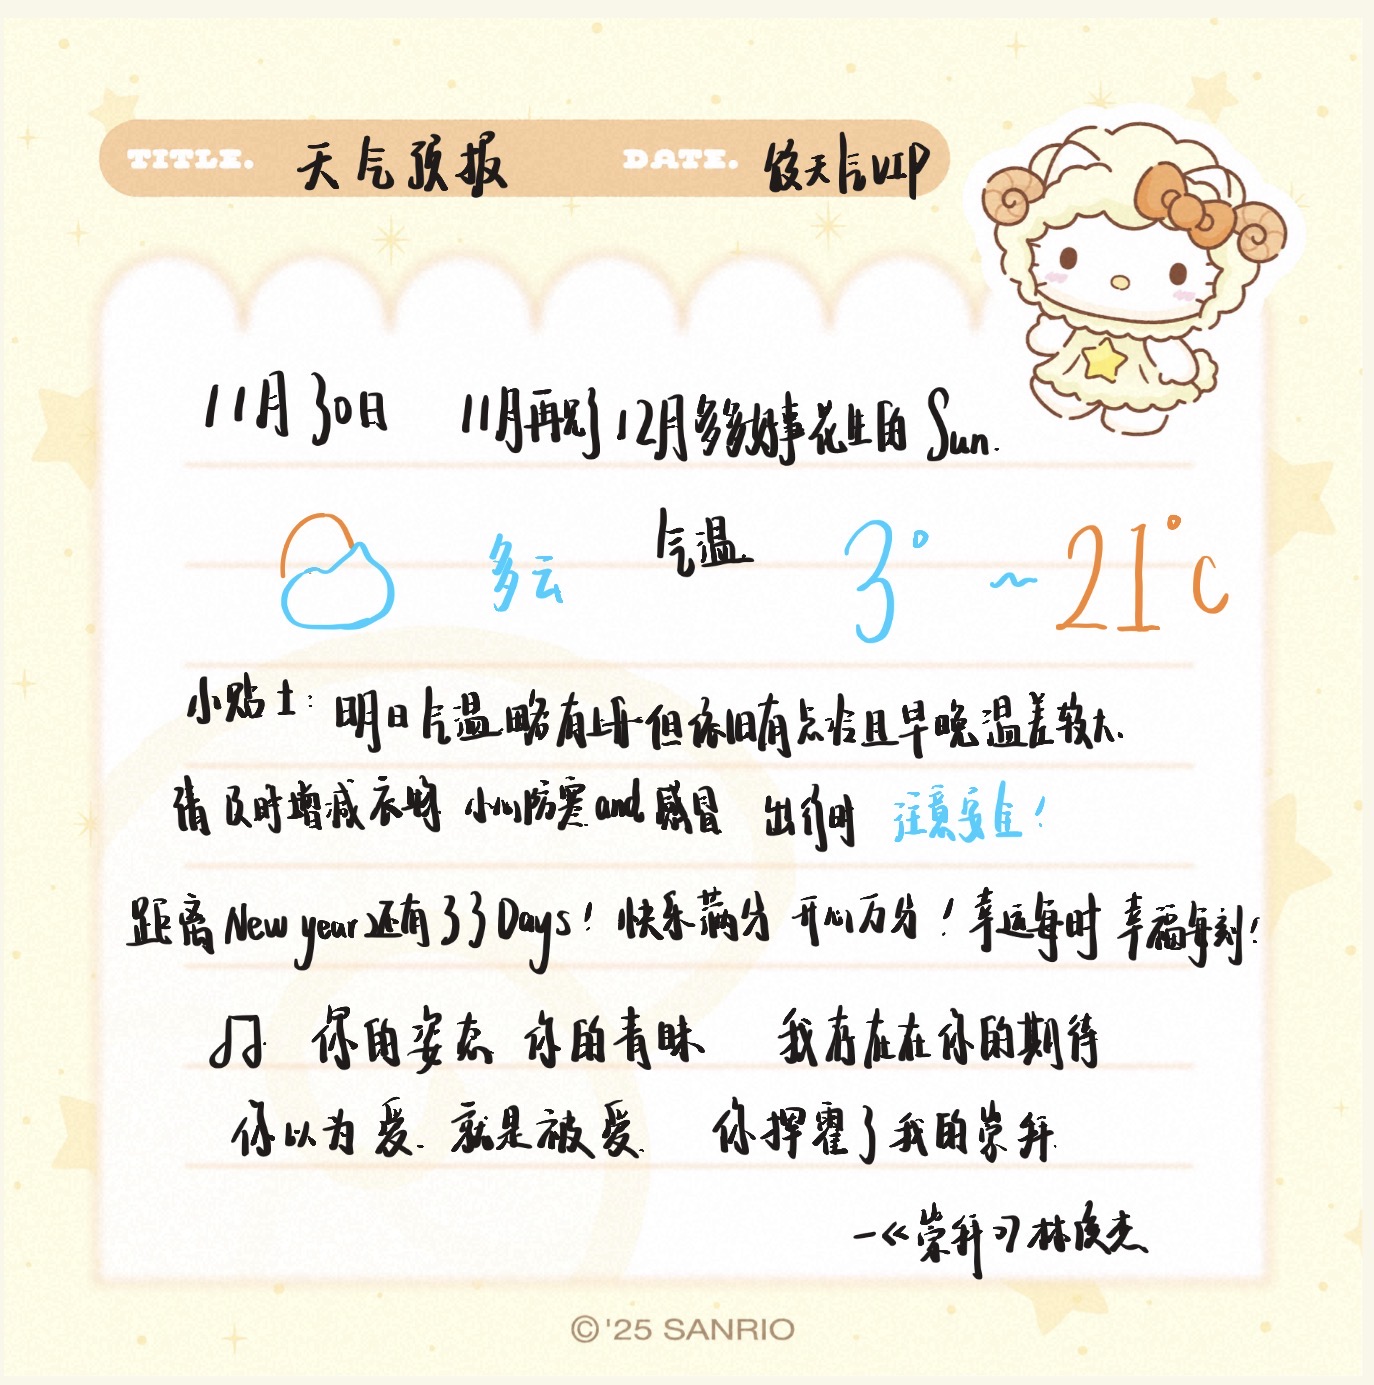 TITLE. 天气预报 DATE. 俊天气VIP
11月30日 11月再见了12月多多好事花生的Sun.
多云 气温 3°~21°C
小贴士: 明日气温略有上升但依旧有点冷且早晚温差较大.
请及时增减衣物 小心防寒and感冒 出行时 注意安全!
距离New year还有33Days! 快乐满分 开心万分! 幸运每时 幸福每刻!
你的姿态 你的青睐 我存在在你的期待
你以为爱 就是被爱 你挥霍了我的崇拜
—《崇拜》林俊杰
©'25 SANRIO